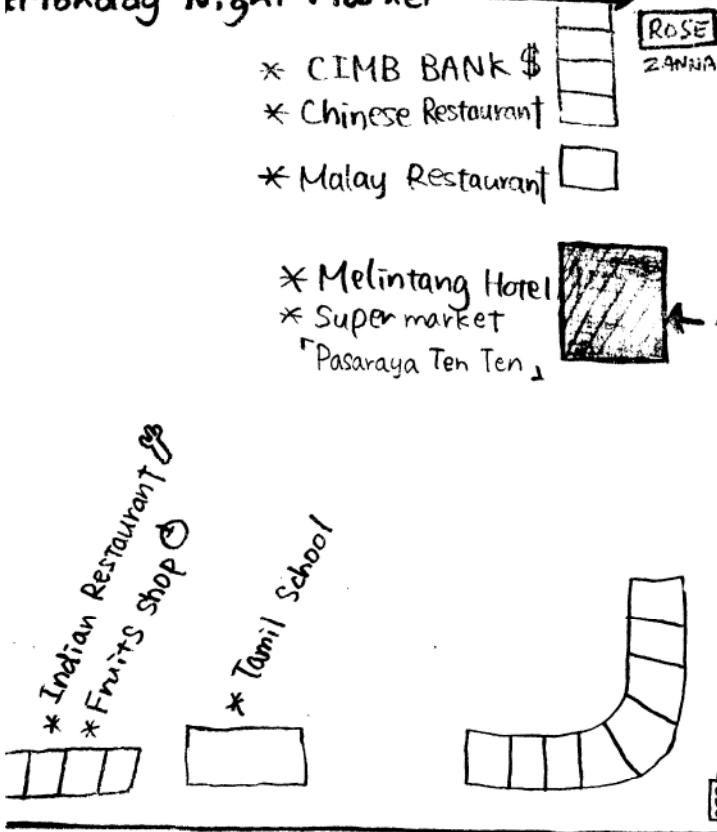 Monday Night Market
ROSE
ZANNIA
* CIMB BANK $
* Chinese Restaurant
* Malay Restaurant
* Melintang Hotel
* Super market
「Pasaraya Ten Ten」
* Indian Restaurant
* Fruits shop
* Tamil School